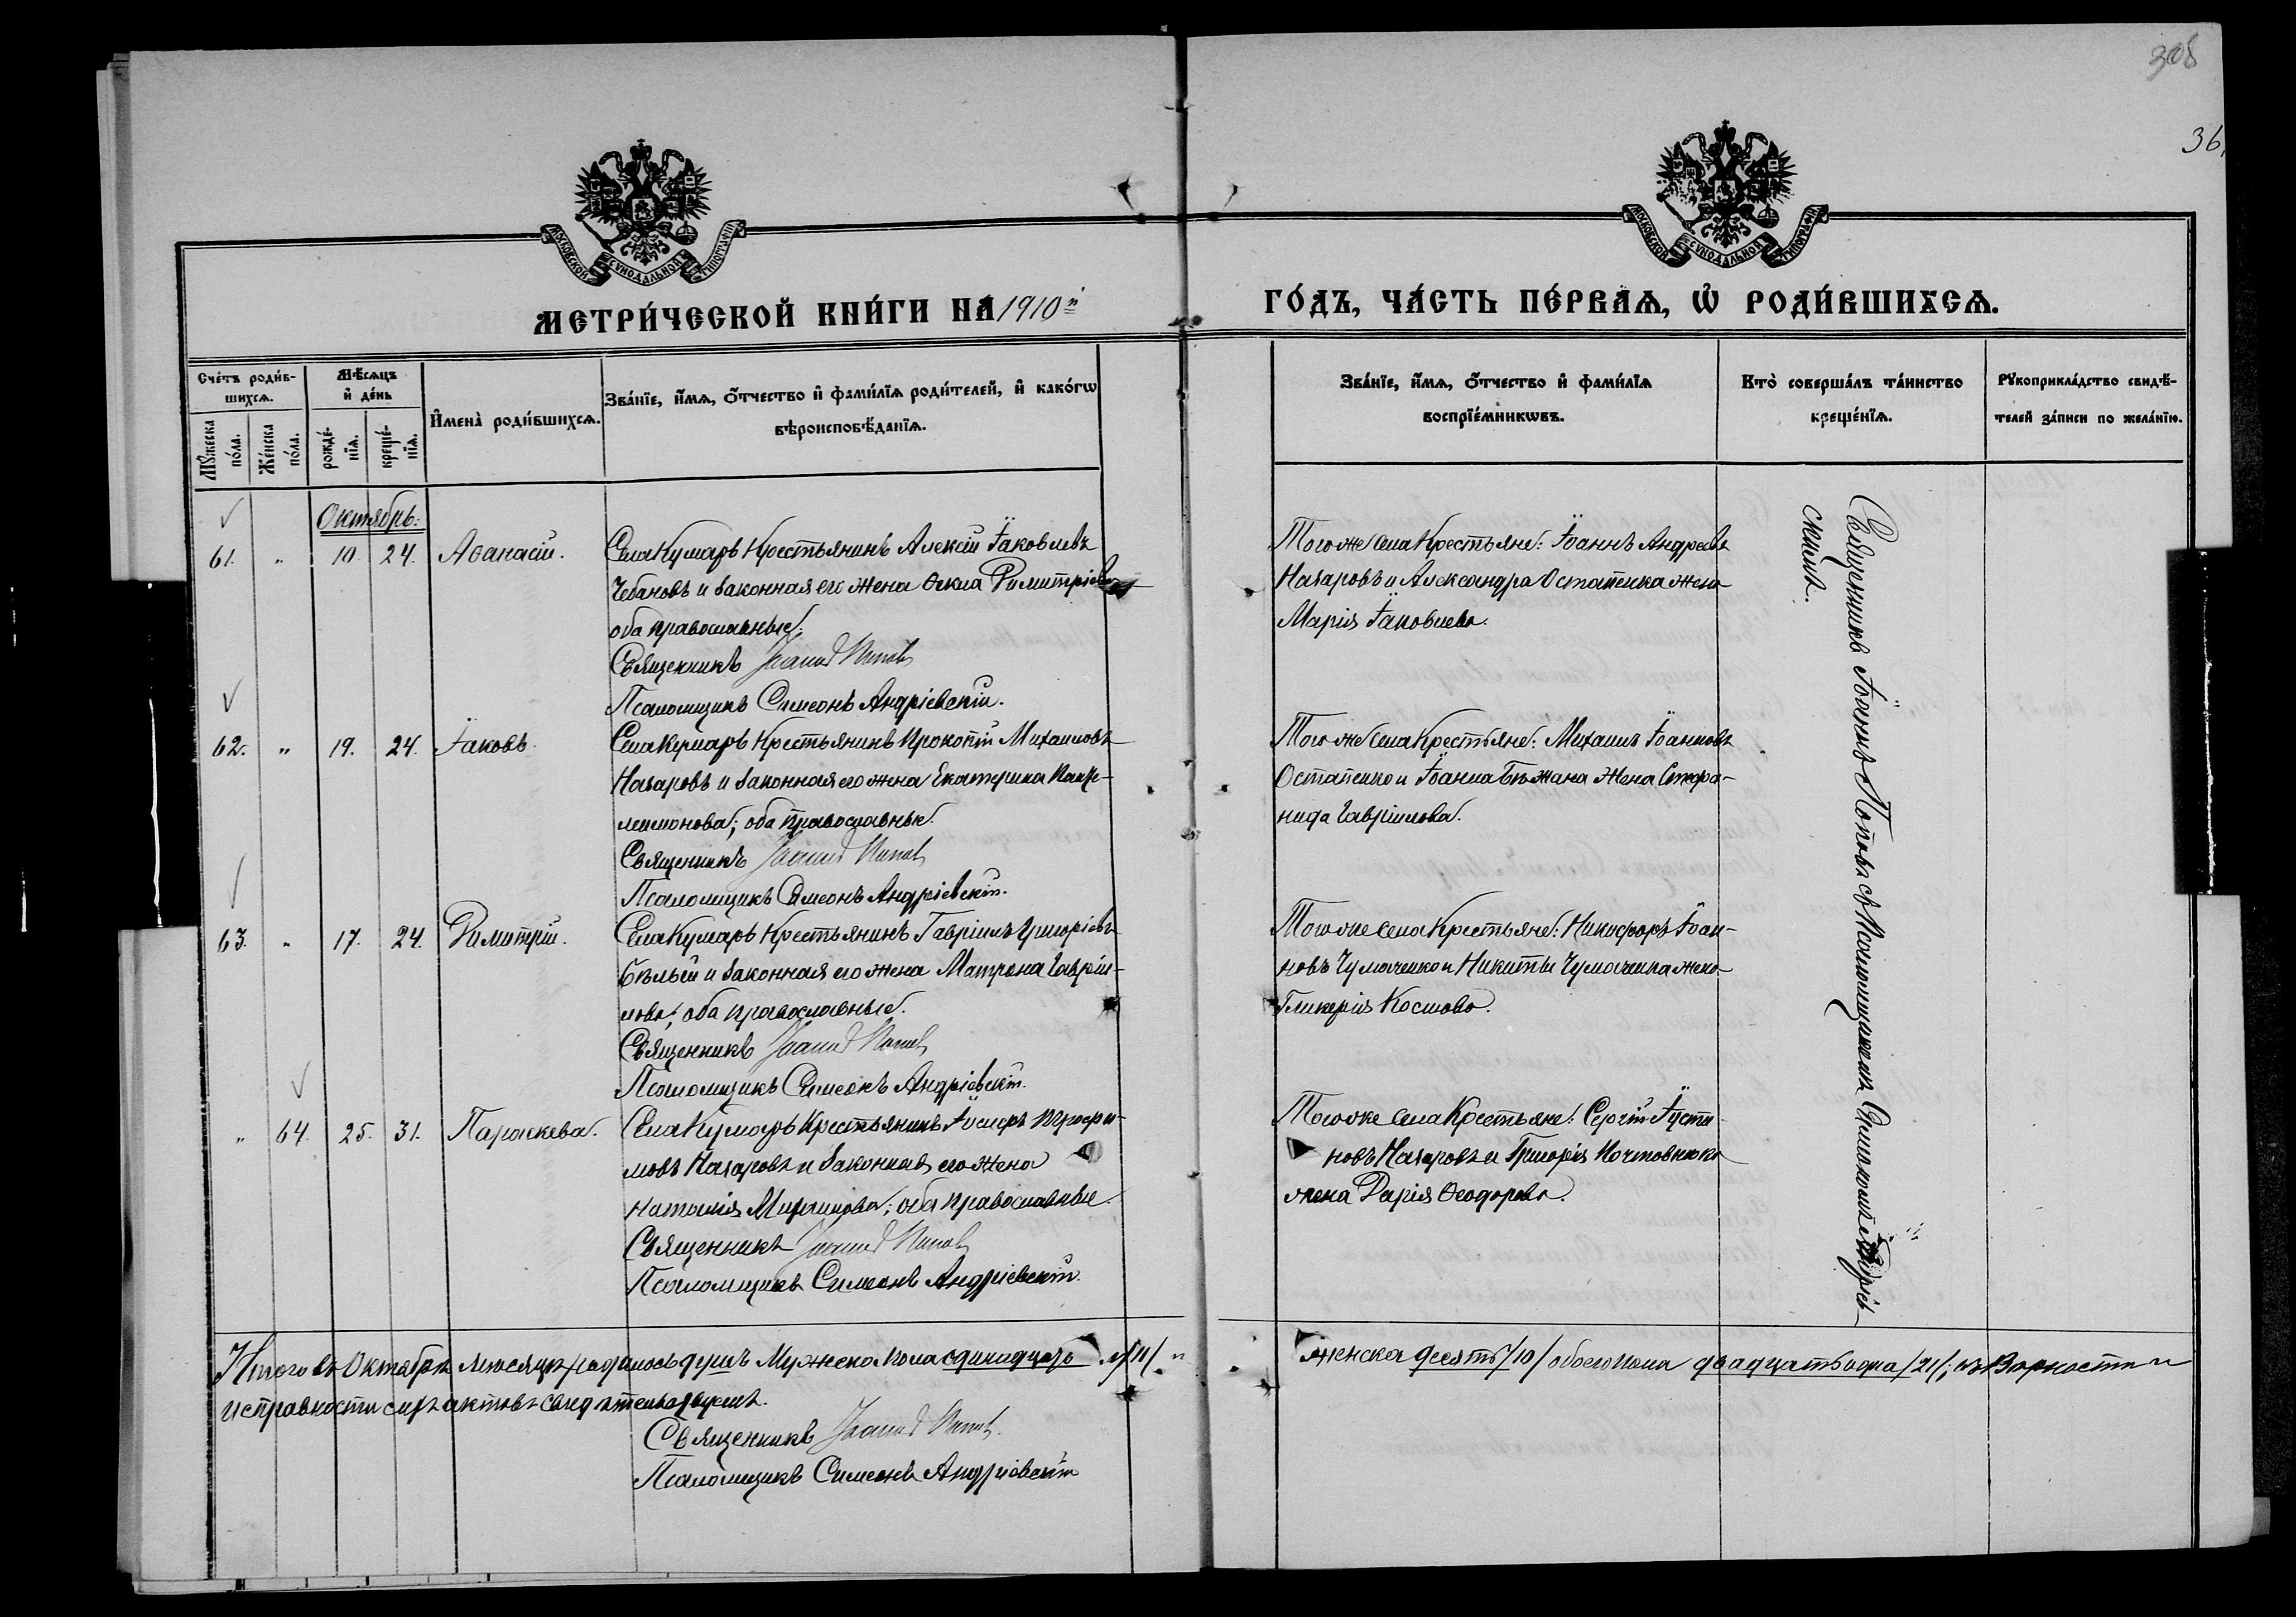 308
36
МОСКОВСКОЙ СУНОДАЛЬНОЙ ТИПОГРАФІИ
МОСКОВСКОЙ СУНОДАЛЬНОЙ ТИПОГРАФІИ
МЕТРИ́ЧЕСКОЙ КНИ́ГИ НА 1910й
ГО́ДЪ, ЧА́СТЬ ПЕ́РВАѦ, Ѽ РОДИ́ВШИХСѦ.
Сче́тъ роди́в-
шихсѧ.
Мѣ́сѧцъ
и҆ де́нь
Мꙋ́жеска
по́ла.
Же́нска
по́ла.
рожде́-
нїѧ.
креще́-
нїѧ.
И҆мена̀ роди́вшихсѧ.
Зва́нїе, и҆́мѧ, ѻ҆́тчество и҆ фами́лїѧ роди́телей, и҆ како́гѡ
вѣроисповѣ́данїѧ.
Зва́нїе, и҆́мѧ, ѻ҆́тчество и҆ фами́лїѧ
воспрїе́мникѡвъ.
Кто̀ соверша́лъ та́инство
креще́нїѧ.
Рꙋкоприкла́дство свидѣ́-
телей за́писи по жела́нїю.
Октябрь:
61. " 10. 24. Аѳанасій.
Села Кумаръ Крестьянинъ Алексій Іаковлевъ
Чебановъ и законная его жена Ѳекла Димитріева
оба православные.
Священникъ Іоаннъ Поповъ
Псаломщикъ Симеонъ Андріевскій.
Того же села Крестьяне: Іоаннъ Андреевъ
Назаровъ и Александра Остапенка жена
Марія Іаковлева.
62. " 19. 24. Іаковъ.
Села Кумаръ Крестьянинъ Прокопій Михаиловъ
Назаровъ и законная его жена Екатерина Панте-
леимонова; оба православные.
Священникъ Іоаннъ Поповъ
Псаломщикъ Симеонъ Андріевскій.
Того же села Крестьяне: Михаилъ Іоанновъ
Остапенко и Іоанна Бѣжана жена Стефа-
нида Гавріилова.
63. " 17. 24. Димитрій.
Села Кумаръ Крестьянинъ Гавріилъ Григоріевъ
Бѣлый и законная его жена Матрона Гавріи-
лова; оба православные.
Священникъ Іоаннъ Поповъ
Псаломщикъ Симеонъ Андріевскій.
Того же села Крестьяне: Никифоръ Іоан-
новъ Чумаченко и Никиты Чумаченка жена
Гликерія Косьмова.
" 64. 25. 31. Параскева.
Села Кумаръ Крестьянинъ
мовъ Назаровъ и законная его жена
Наталія Михаилова; оба православные.
Священникъ Іоаннъ Поповъ
Псаломщикъ Симеонъ Андріевскій.
Того же села Крестьяне: Сергій Іусти-
новъ Назаровъ и Григорія
жена Дарія Ѳеодорова.
Священникъ Іоаннъ Поповъ съ Псаломщикомъ Симеономъ Андріев-
скимъ.
Итого въ Октябрѣ мѣсяцѣ родилось душъ Мужеска пола одинадцать /11/ и
женска десять /10/ обоего пола двадцать одна /21/; въ вѣрности и
исправности сихъ актовъ свидѣтельствуемъ.
Священникъ Іоаннъ Поповъ
Псаломщикъ Симеонъ Андріевскій